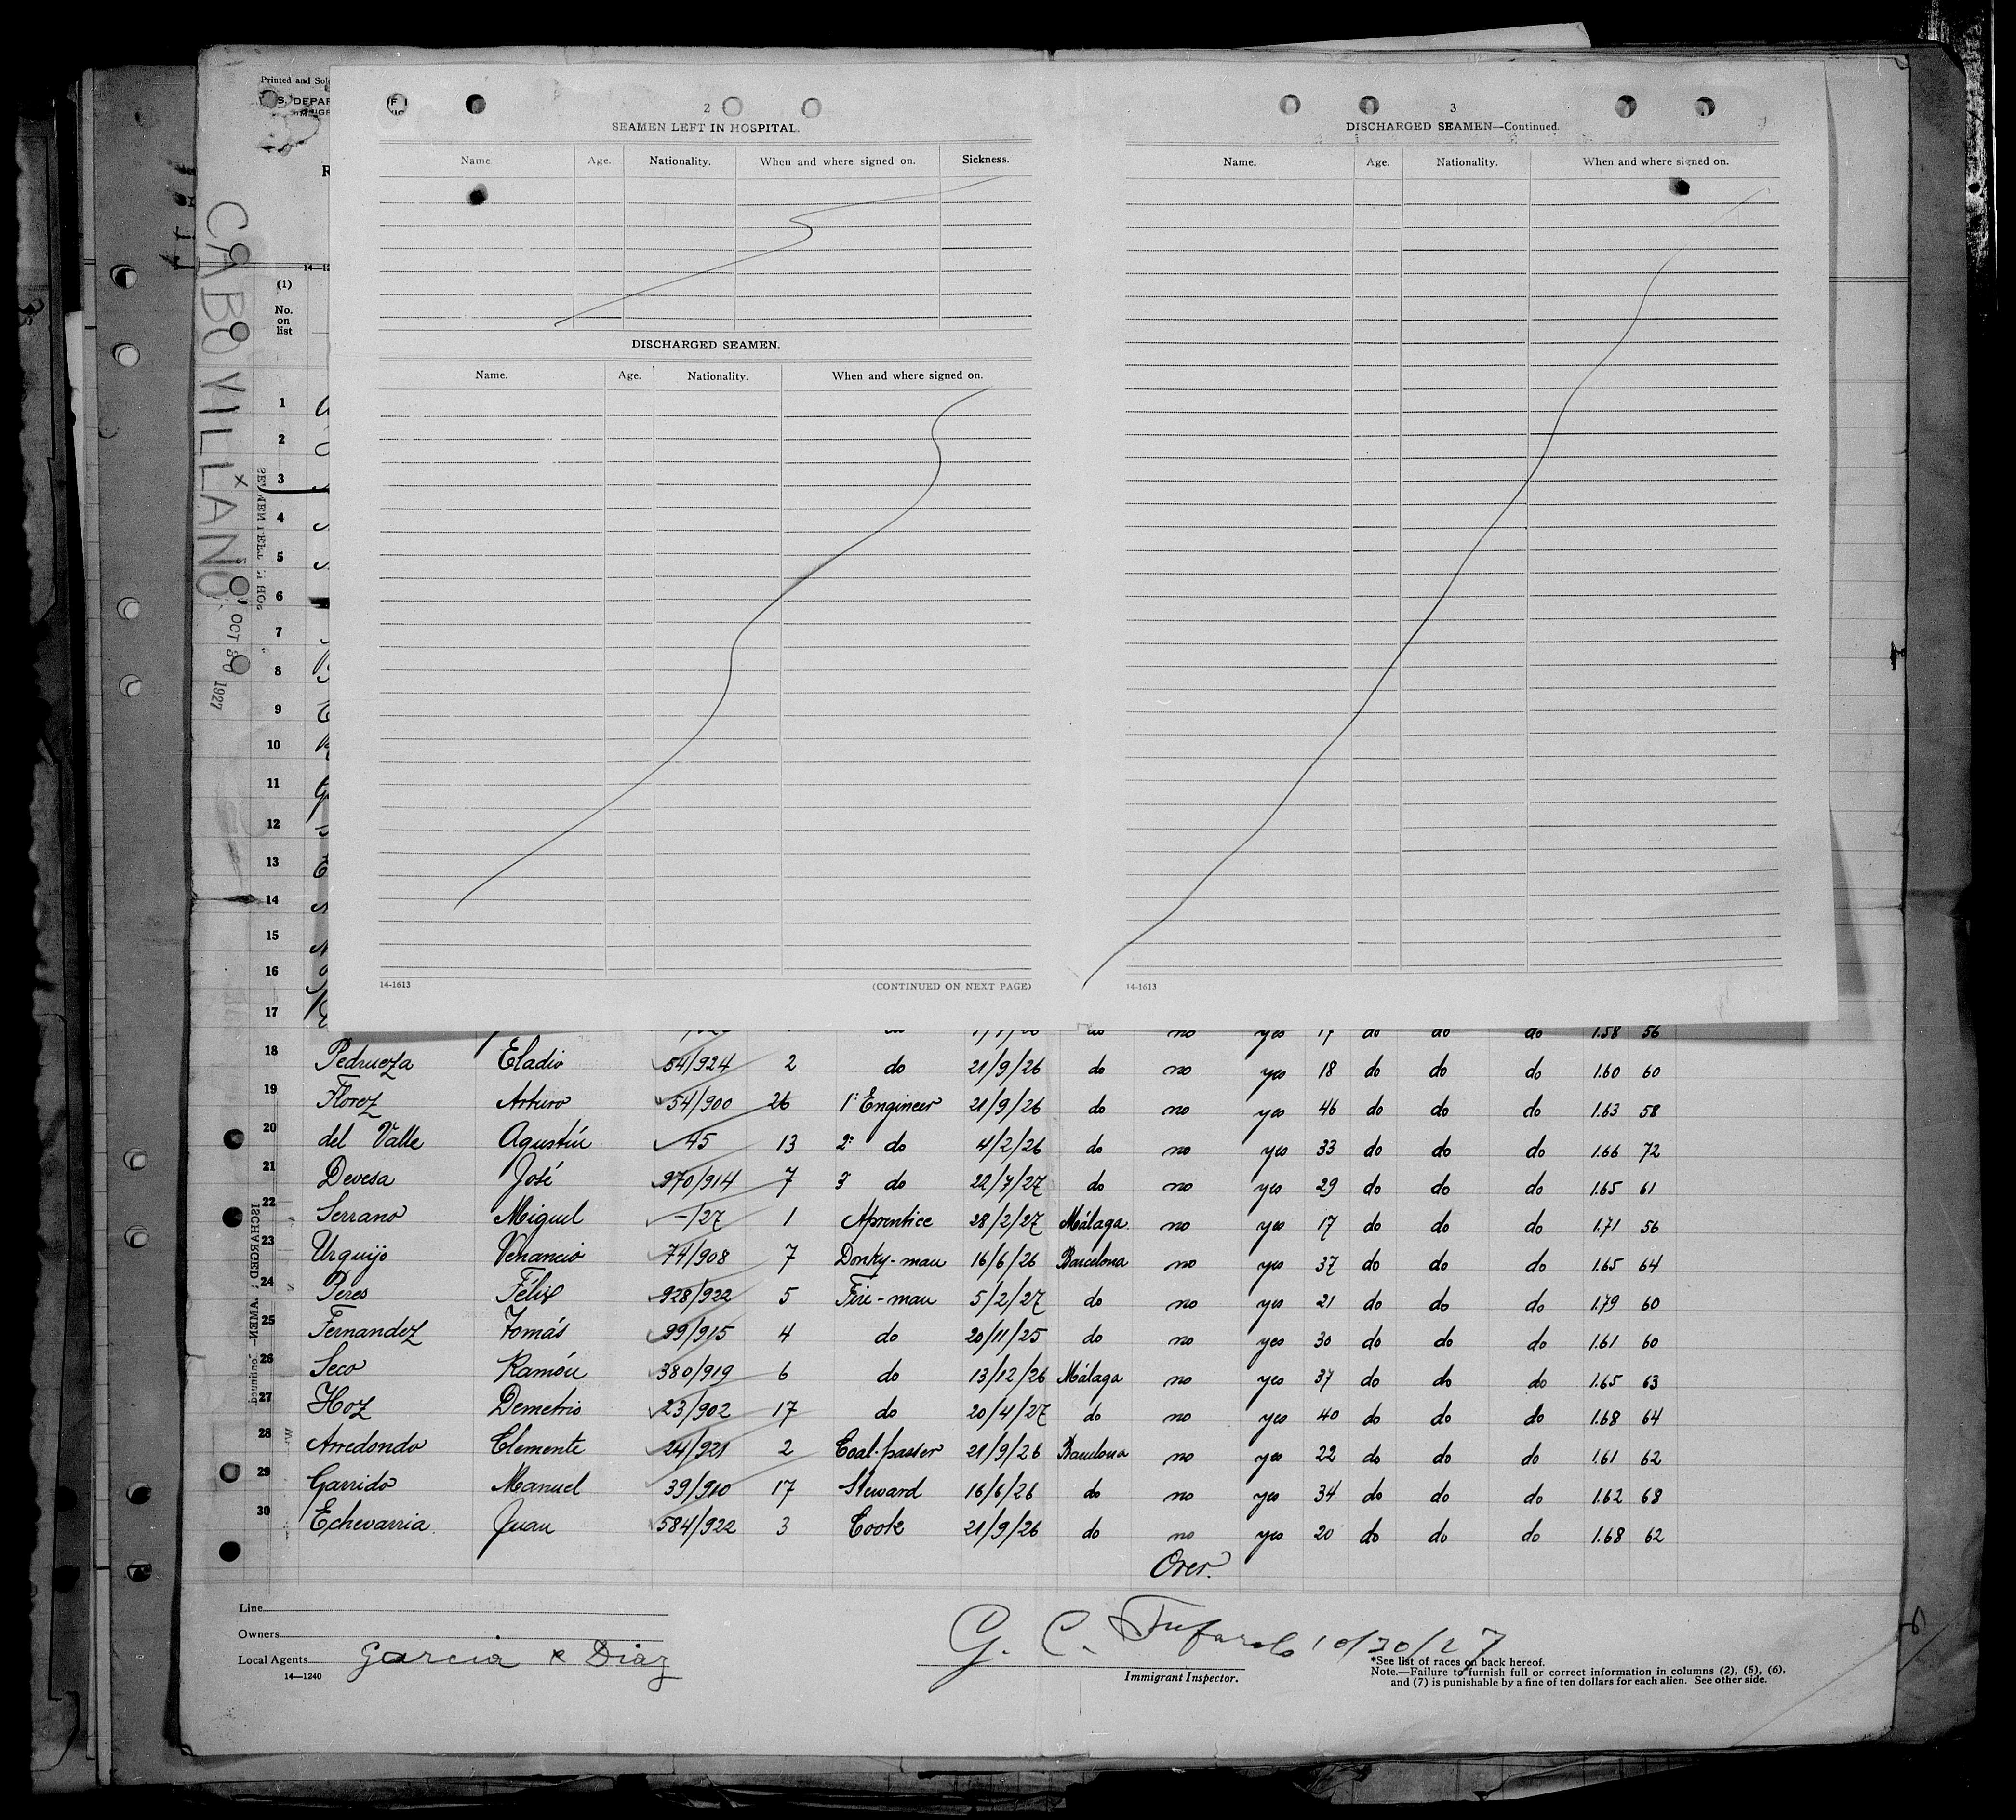 Printed and Sold
S. DEPAR
2
SEAMEN LEFT IN HOSPITAL.
Name. Age. Nationality. When and where signed on. Sickness.
DISCHARGED SEAMEN.
Name. Age. Nationality. When and where signed on.
14-1613 (CONTINUED ON NEXT PAGE)
3
DISCHARGED SEAMEN—Continued.
Name. Age. Nationality. When and where signed on.
14-1613
CABO VILLANO
OCT 30 1927
(1)
No. on list
1
2
3
4
5
6
7
8
9
10
11
12
13
14
15
16
17 do no yes 17 do do do 1.58 56
18 Pedrueza Eladio 54/924 2 do 21/9/26 do no yes 18 do do do 1.60 60
19 Florez Arturo 54/900 26 1º Engineer 21/9/26 do no yes 46 do do do 1.63 58
20 del Valle Agustín 45 13 2º do 4/2/26 do no yes 33 do do do 1.66 72
21 Devesa José 970/914 7 3º do 22/7/27 do no yes 29 do do do 1.65 61
22 Serrano Miguel -/27 1 Aprentice 28/2/27 Málaga no yes 17 do do do 1.71 56
23 Urquijo Venancio 74/908 7 Donky-man 16/6/26 Barcelona no yes 37 do do do 1.65 64
24 Peres Félix 928/922 5 Fire-man 5/2/27 do no yes 21 do do do 1.79 60
25 Fernandez Tomás 99/915 4 do 20/11/25 do no yes 30 do do do 1.61 60
26 Seco Ramón 380/919 6 do 13/12/26 Málaga no yes 37 do do do 1.65 63
27 Hoz Demetrio 23/902 17 do 20/4/27 do no yes 40 do do do 1.68 64
28 Arredondo Clemente 24/921 2 Coal-passer 21/9/26 Barcelona no yes 22 do do do 1.61 62
29 Garrido Manuel 39/910 17 Steward 16/6/26 do no yes 34 do do do 1.62 68
30 Echevarria Juan 584/922 3 Cook 21/9/26 do no yes 20 do do do 1.68 62
Over.
Line
Owners
Local Agents Garcia & Diaz
14—1240
G. C. Tufarolo 10/30/27
Immigrant Inspector.
*See list of races on back hereof.
Note.—Failure to furnish full or correct information in columns (2), (5), (6),
and (7) is punishable by a fine of ten dollars for each alien. See other side.